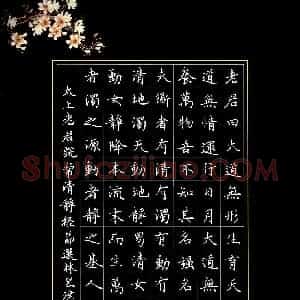 老君曰大道無形生育天
道無情運行日月大道無
養萬物吾不知其名強名
夫道者有清有濁有動有
清地濁天動地靜男清女
動女靜降本流末而生萬
者濁之源動者靜之基人
太上老君說常清靜經節選林